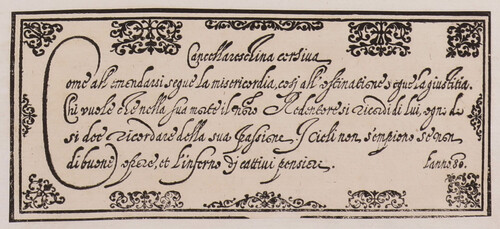 Cancellareschina corsiva
Come all'emendarsi segue la misericordia, cosi all'ostinatione segue la giustitia.
Chi vuole che nella sua morte il nostro Redentore si ricordi di lui, ogni di
si dee ricordare della sua Passione. I cieli non s'empiono se non
di buone opere, et l'inferno di cattivi pensieri. L'anno 86.